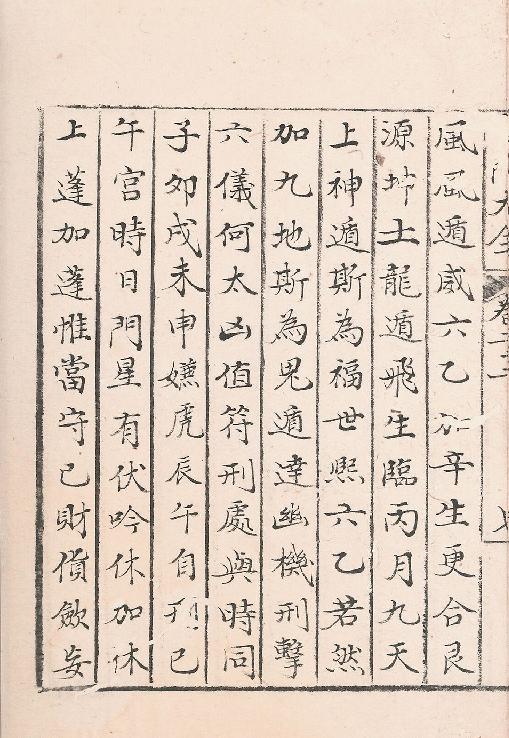 風風遁威六乙加辛生更合艮
源坤土龍遁飛生臨丙月九天
上神遁斯為福世熙六乙若然
加九地斯為鬼遁達幽機刑擊
六儀何太凶值符刑處與時同
子卯戌未申嫌虎辰午自刑巳
午宮時日門星有伏吟休加休
上蓬加蓬惟當守已財償歛妄